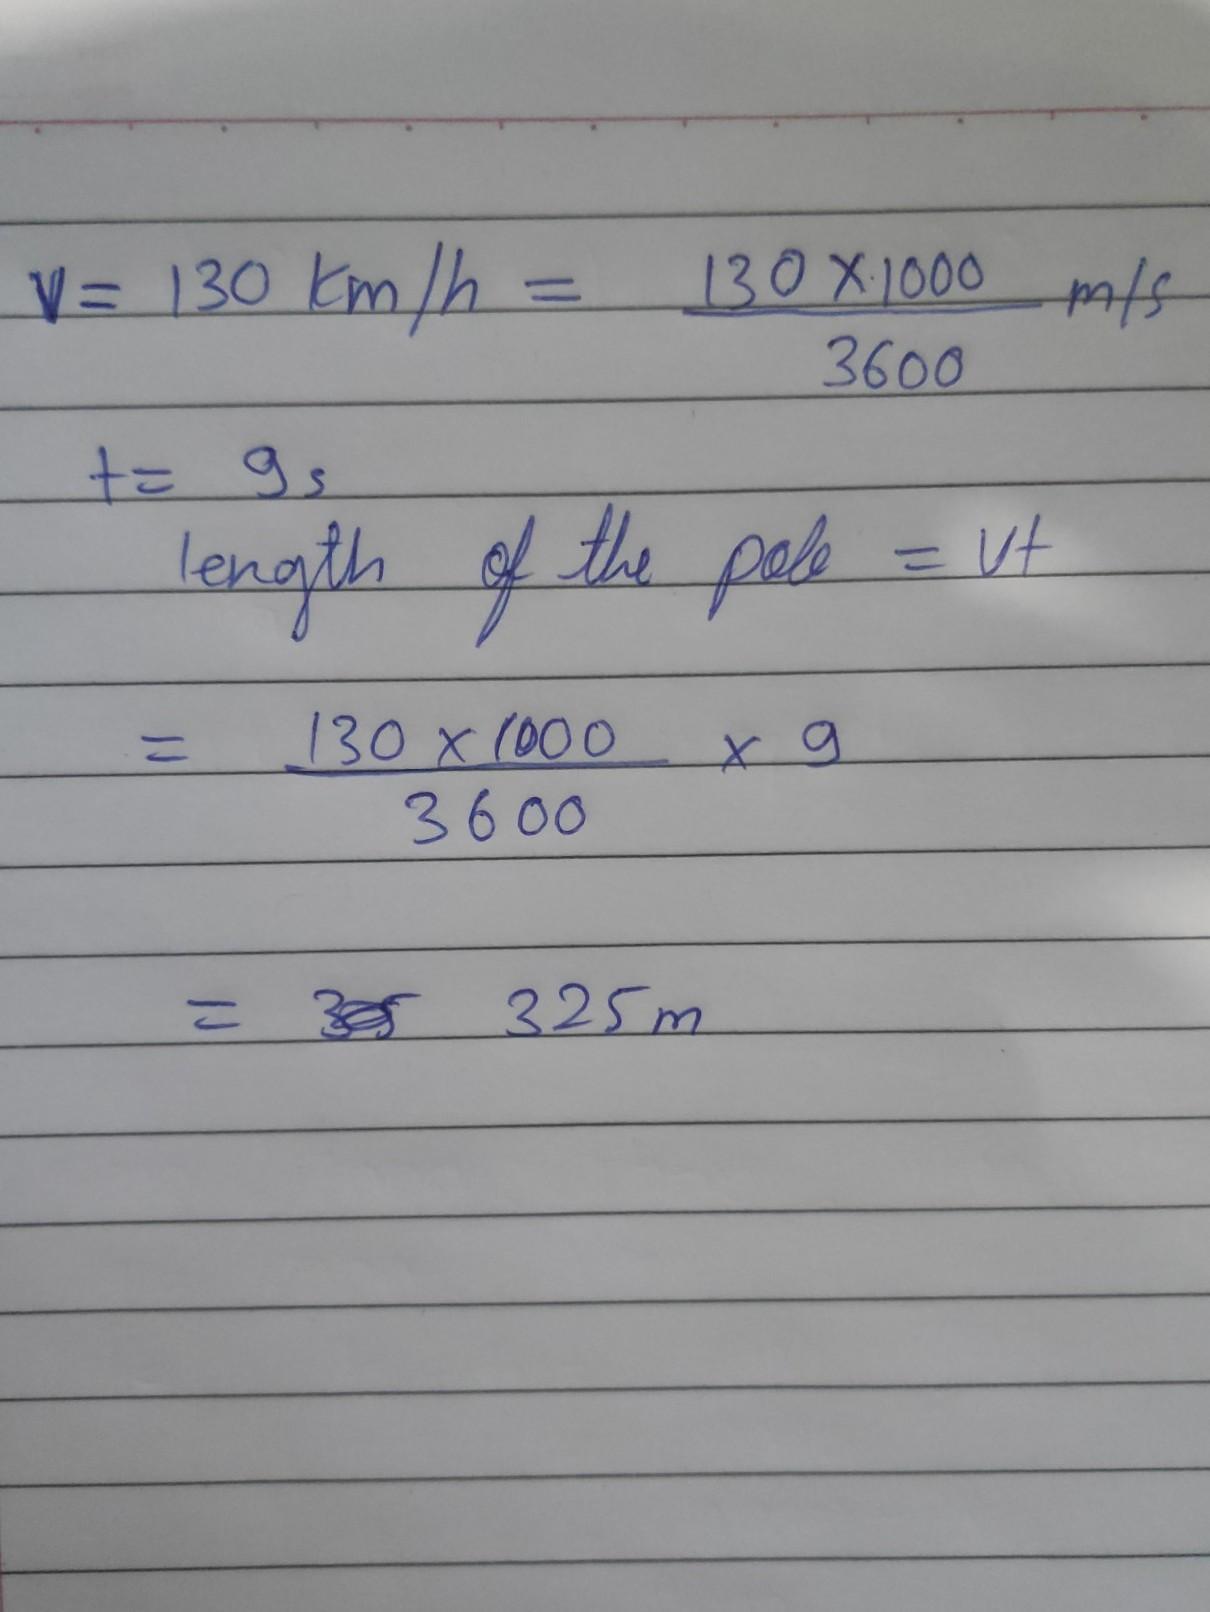 v = 130 km/h = 130 x 1000 / 3600 m/s
t = 9s
length of the pole = vt
= 130 x 1000 / 3600 x 9
= 325m